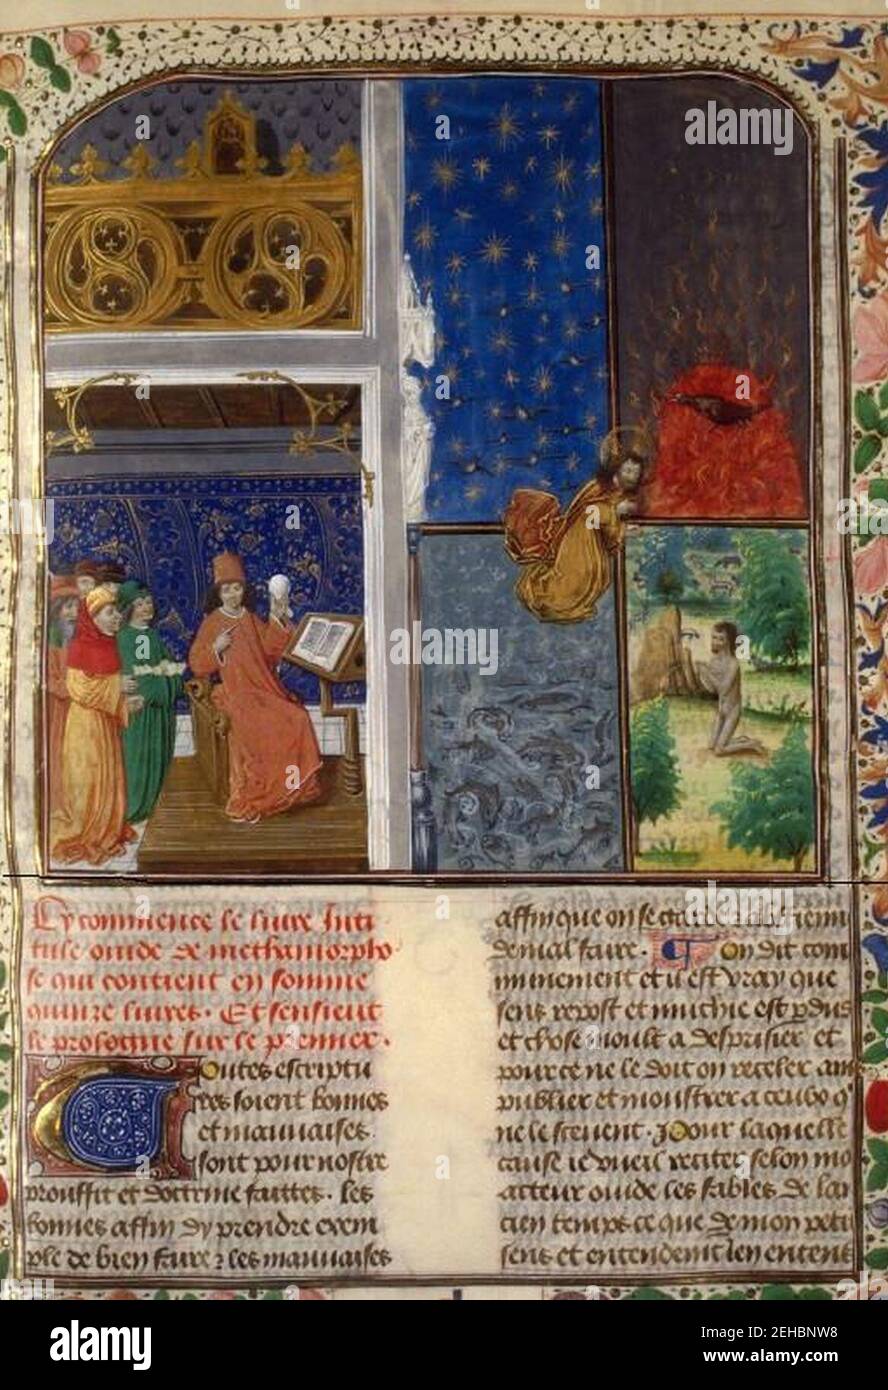 Cy commence le livre Inti
tule ouide de methamorpho
se qui contient en somme
quinze liures. Et sensieut
le prologue sur le premier.
Toutes escriptu
res soient bonnes
et mauuaises
sont pour nostre
prouffit et doctrine faittes. les
bonnes affin dy prendre exem
ple de bien faire 2 les mauuaises
affin que on se garde 2
de mal faire. on dit com
munement et il est vray que
sens repost et muchie est perdus
et chose moult a desprisier et
pour ce ne le doit on receler ains
publier et moustrer a ceulx q'
ne le sceuent. pour laquelle
cause ie vueil reciter selon mo
acteur ouide les fables de lan
cien temps ce que de mon petit
sens et entendement Jen entens
alamy
Image ID: 2EHBNW8
www.alamy.com